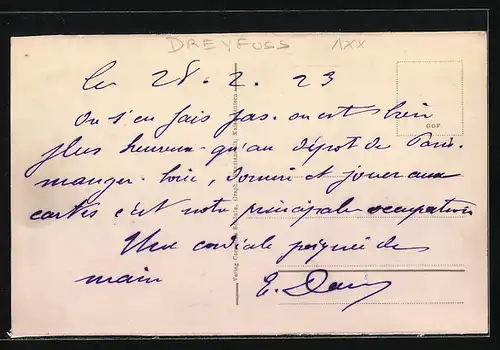 DREYFUSS
le 28.2.23
GOF
On s'en fais pas. on est bien
plus heureux qu'au dépot de Paris.
manger. boire, Dormir et jouer aux
cartes c'est notre principale occupation
Une cordiale poignée de
main
E.